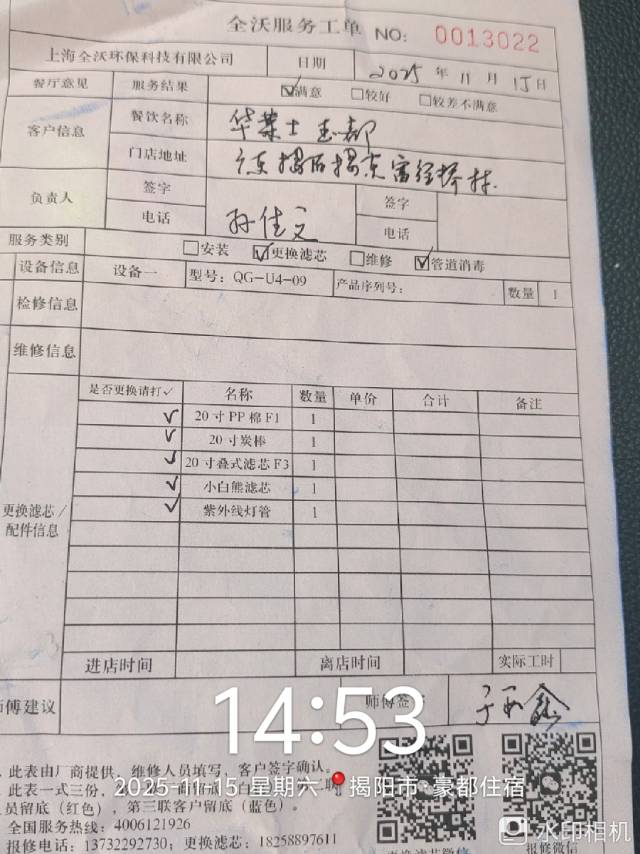 全沃服务工单 NO: 0013022
上海全沃环保科技有限公司 日期 2025 年 11 月 15 日
餐厅意见 服务结果 ☑满意 □较好 □较差不满意
客户信息 餐饮名称 华莱士
门店地址
负责人 签字 孙佳文 签字
电话 电话
服务类别 □安装 ☑更换滤芯 □维修 ☑管道消毒
设备信息 设备一 型号: QG-U4-09 产品序列号: 数量 1
检修信息
维修信息
更换滤芯/配件信息 是否更换请打✓ 名称 数量 单价 合计 备注
✓ 20寸PP棉F1 1
✓ 20寸炭棒 1
✓ 20寸叠式滤芯F3 1
✓ 小白熊滤芯 1
✓ 紫外线灯管 1
进店时间 离店时间 实际工时
师傅建议 师傅签
14:53
2025-11-15 星期六 揭阳市·豪都住宿
此表由厂商提供,维修人员填写,客户签字确认。
此表一式三份,
员留底(红色),第三联客户留底(蓝色)。
全国服务热线: 4006121926
报修电话: 13732292730; 更换滤芯: 18258897611
报修微信
水印相机